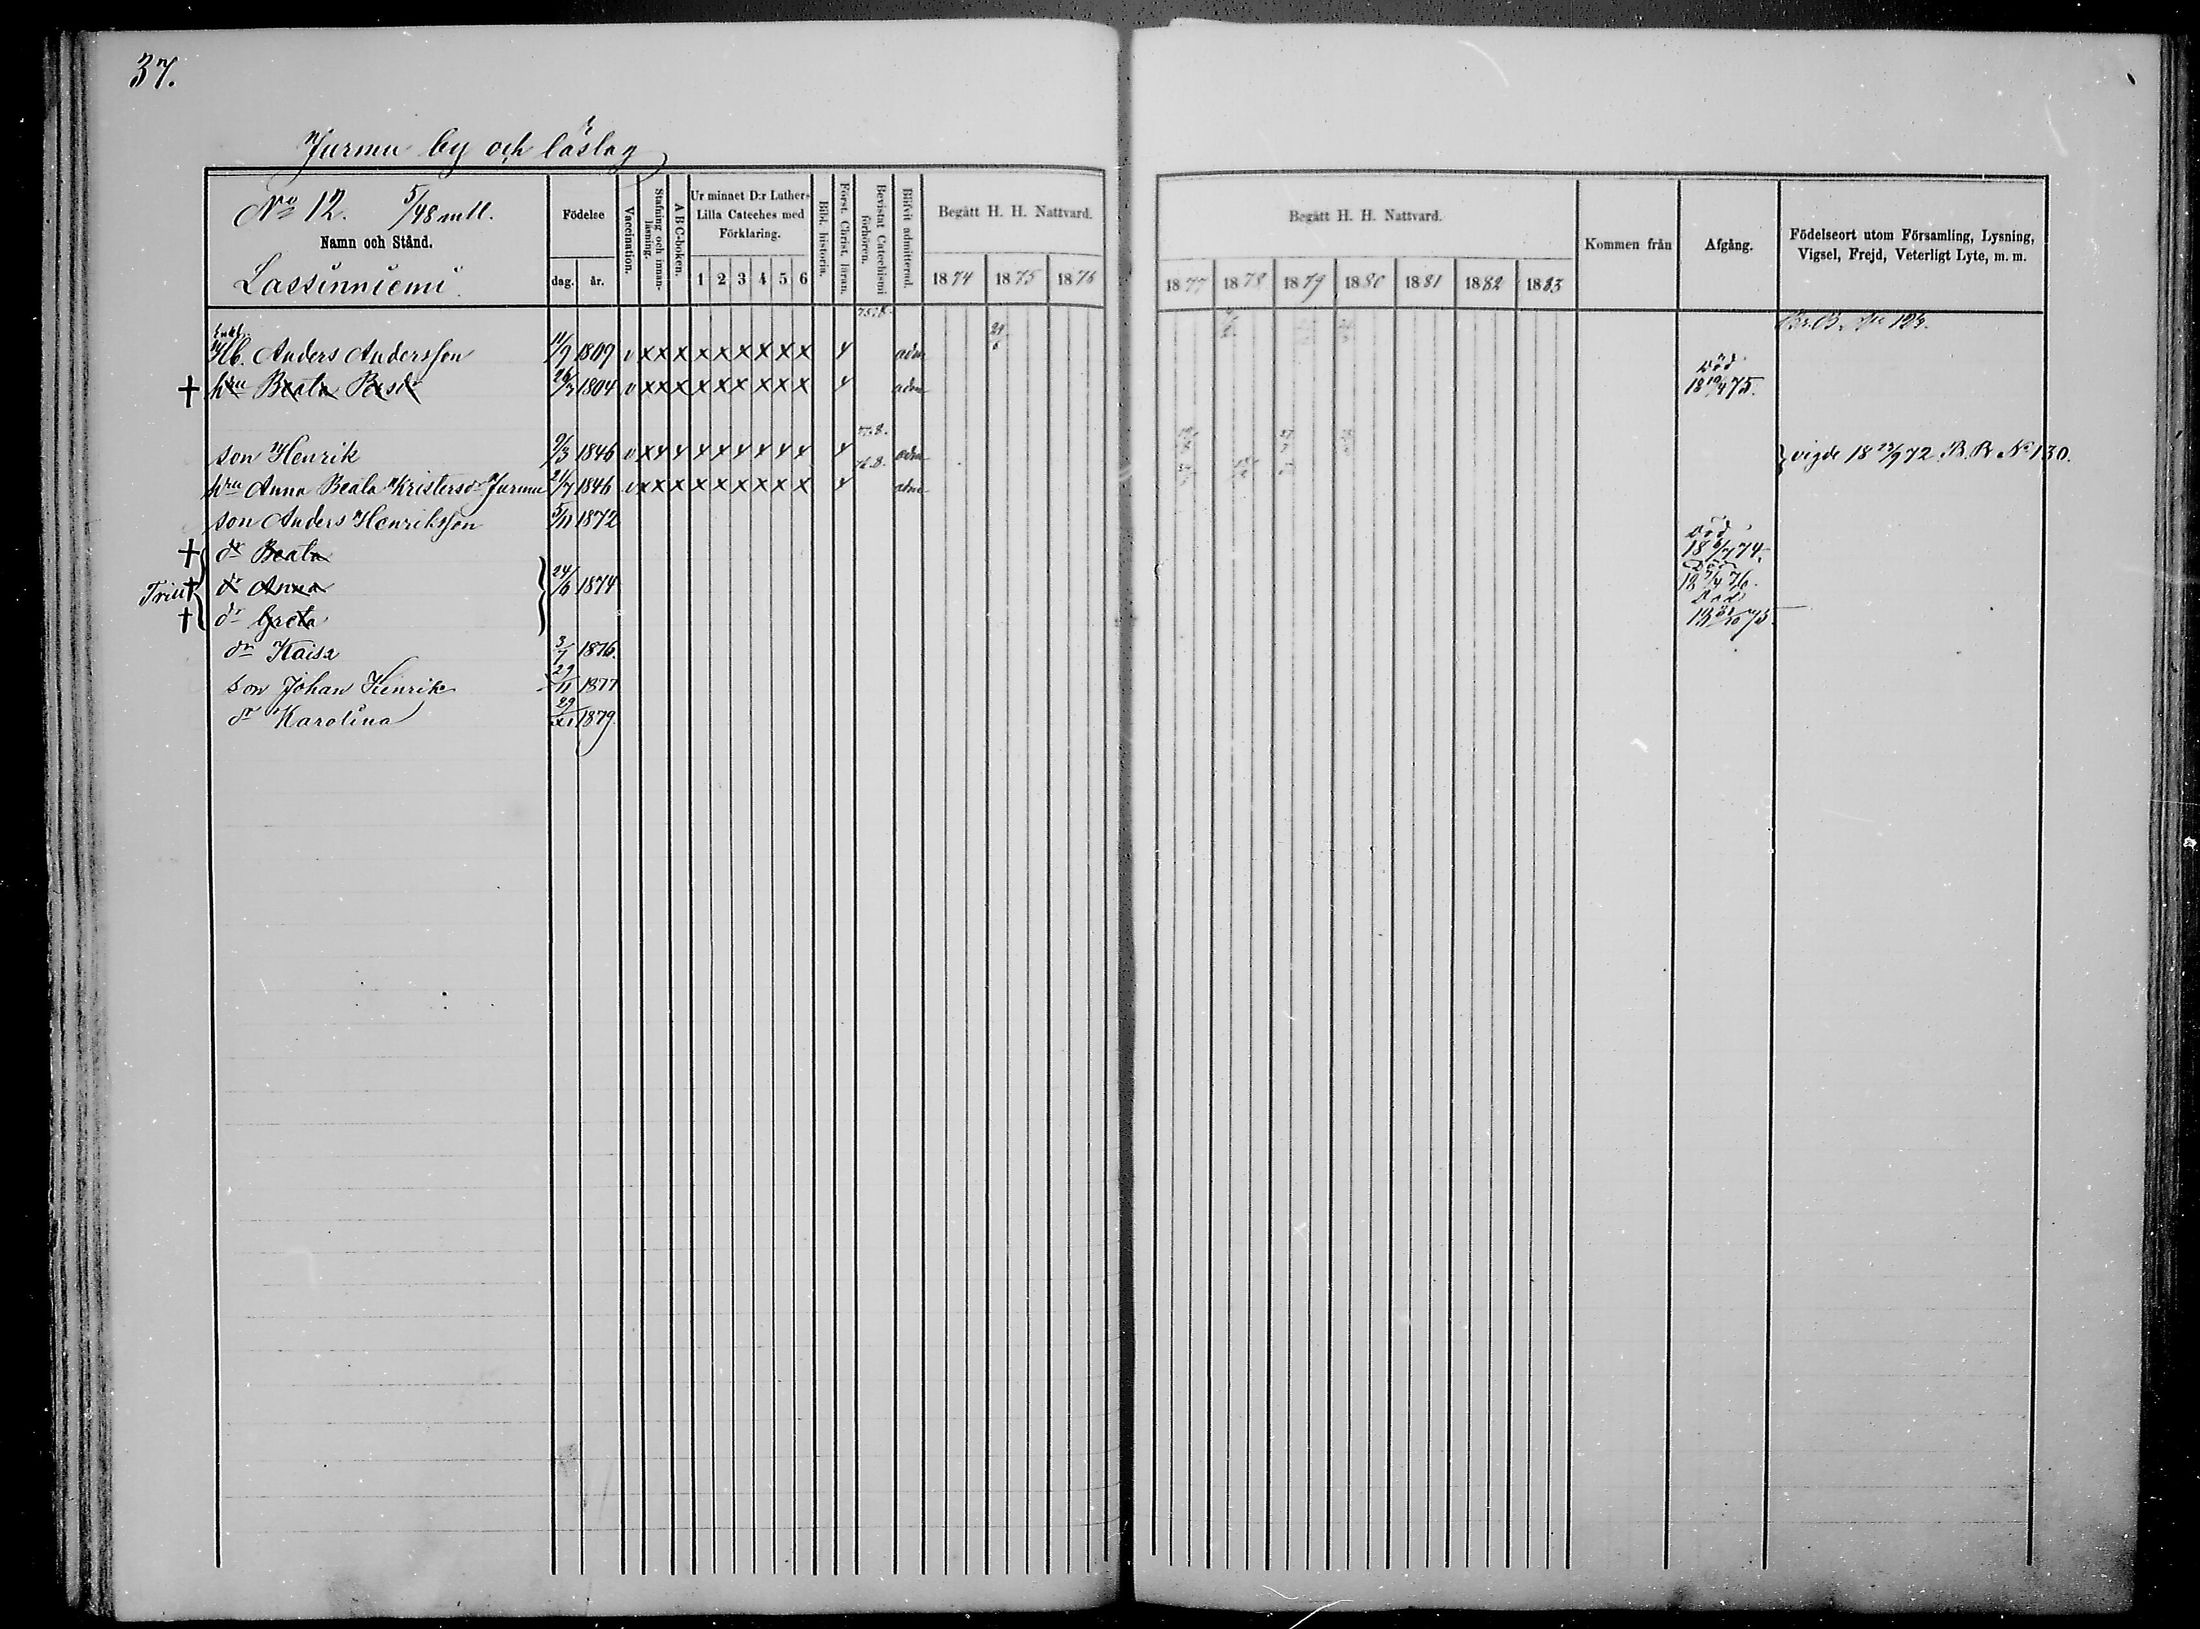 37.
Jurmu by och läslag
No 12. 5/48 mtl.
Namn och Stånd.
Lassinniemi
Födelse
dag. år.
Vaccination.
Stafning och innanläsning.
A B C-boken.
Ur minnet D:r Luthers Lilla Cateches med Förklaring.
1 2 3 4 5 6
Bibl. historia.
Först. Christ. läran.
Bevistat Catechismi förhören.
Blifvit admitterad.
Begått H. H. Nattvard.
1874 1875 1876
Begått H. H. Nattvard.
1877 1878 1879 1880 1881 1882 1883
Kommen från
Afgång.
Födelseort utom Församling, Lysning, Vigsel, Frejd, Veterligt Lyte, m. m.
Enkl.
Hb. Anders Andersson 11/9 1809 v x x x x x x x x x 4 adm
† hru Beata 26/7 1804 v x x x x x x x x x 4 adm Död 18 10/4 75.
son Henrik 9/3 1846 v x 4 4 4 4 4 4 4 4 4 adm } vigde 18 23/9 72 B. B No 130.
hru Anna Beata Kristersdr Jurmu 21/7 1846 v x x x x x x x x x 4 adm
son Anders Henriksson 5/11 1872
† dr Beata Död 18 6/7 74.
† dr Anna 24/6 1874 Död
† dr Greta Död
dr Kaisa 3/7 1876.
son Johan Henrik 29/11 1877
dr Karolina 29/XI 1879.